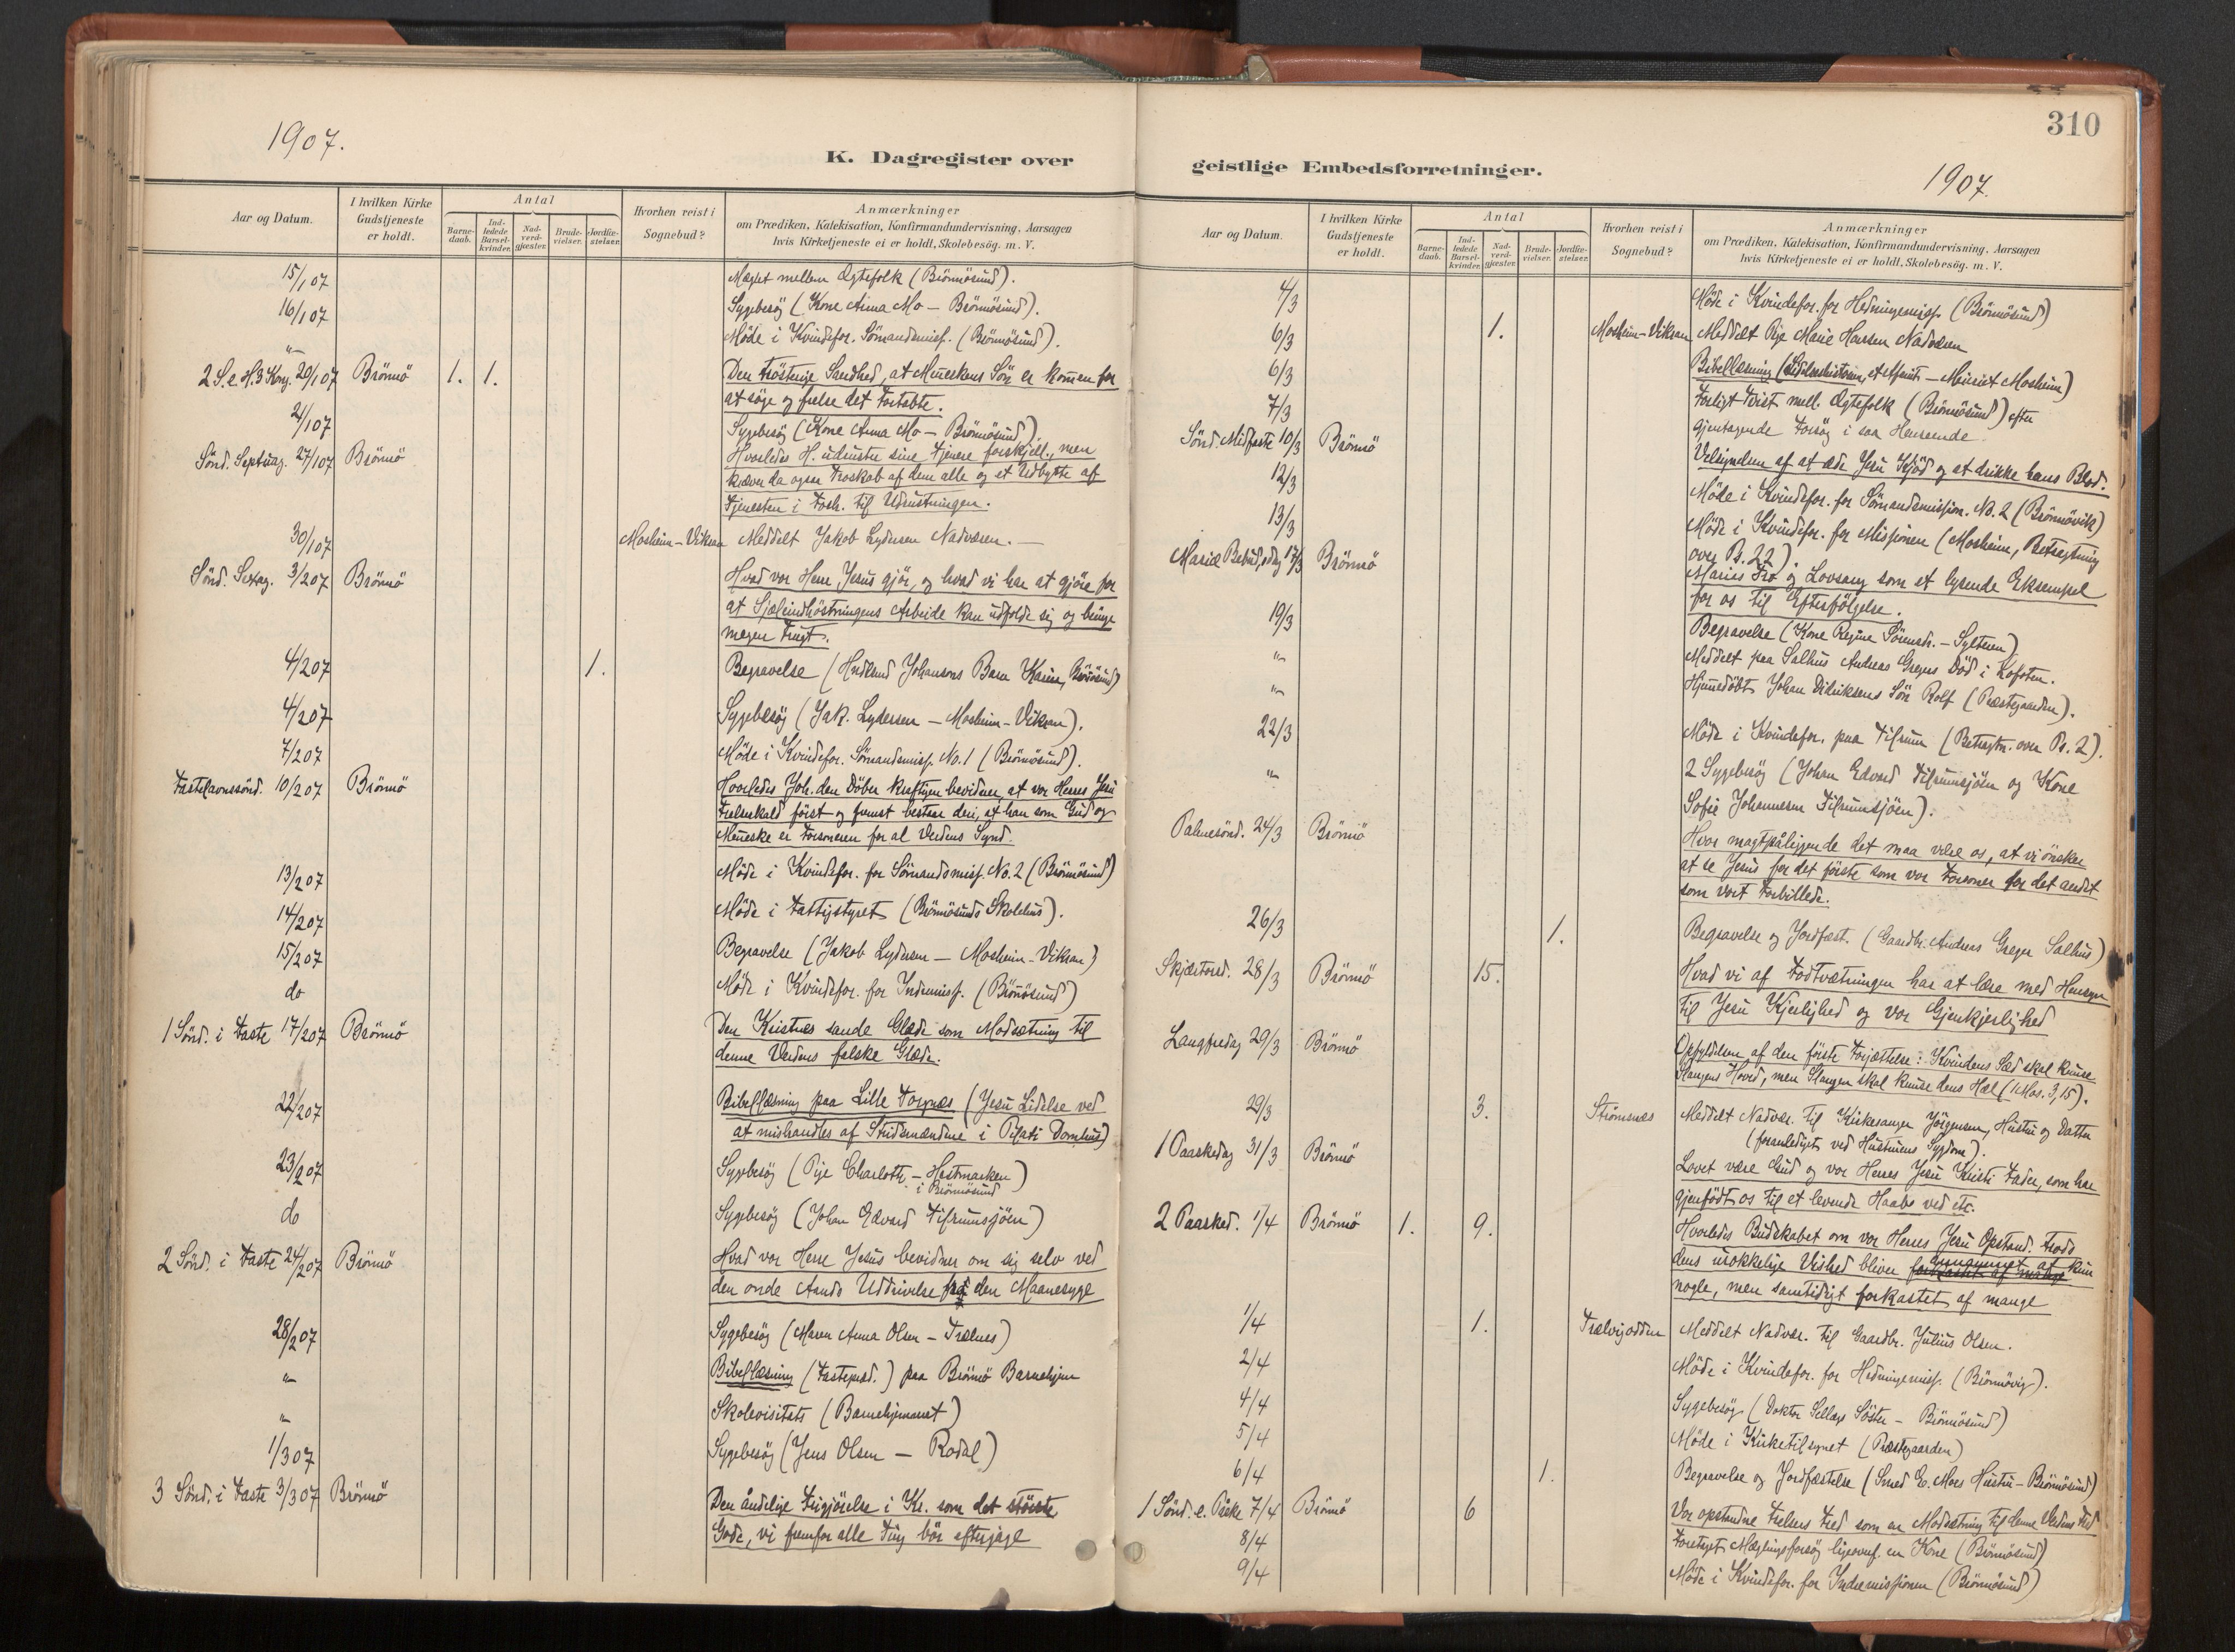 1907.
K. Dagregister over
Aar og Datum.
I hvilken Kirke
Gudstjeneste
er holdt.
Antal
Barne-
daab.
Ind-
ledede
Barsel-
kvinder.
Nad-
verd-
gjæster.
Brude-
vielser.
Jordfæ-
stelser.
Hvorhen reist i
Sognebud?
Anmærkninger
om Prædiken, Katekisation, Konfirmandundervisning, Aarsagen
hvis Kirketjeneste ei er holdt, Skolebesög. m. V.
15/1 07 Mæglet mellem Ægtefolk (Brönnösund).
16/1 07 Sygebesög (Kone Anna Mo – Brönnösund).
" Möde i Kvindefor. Sömandsmiss. (Brönnösund).
2 S. e. H. 3 Kong. 20/1 07 Brönnö 1. 1. Den tröstelige Sandhed, at Menneskens Sön er kommen for
at söge og frelse det Fortabte.
21/1 07 Sygebesög (Kone Anna Mo – Brönnösund)
Sönd. Septuag. 27/1 07 Brönnö Hvorledes H. udruster sine Tjenere forskjell., men
kræver da ogsaa Troskab af dem alle og et Udbytte af
Tjenesten i Forh. til Udrustningen.
30/1 07 Mosheim – Vikran Meddelt Jakob Lydersen Nadveren. —
Sönd. Sexag. 3/2 07 Brönnö Hvad vor Herre Jesus gjör, og hvad vi har at gjöre for
at Sjæleindhöstningens Arbeide kan udfolde sig og bringe
megen Frugt.
4/2 07 1. Begravelse ( Johansens Barn Karin, Brönösund)
4/2 07 Sygebesög (Jak. Lydersen – Mosheim – Vikran).
7/2 07 Möde i Kvindefor. Sömandsmiss. No. 1 (Brönnösund).
Fastelavnssönd. 10/2 07 Brönnö Hvorledes Joh. den Döber kraftigen bevidner, at vor Herres Jesu
Frelserkald först og fremst bestaar deri, at han som Gud og
Menneske er Forsoneren for al Verdens Synd.
13/2 07 Möde i Kvindefor. for Sömandsmiss. No. 2 (Brönnösund)
14/2 07 Möde i Fattigstyret (Brönnösunds Skolehus).
15/2 07 Begravelse (Jakob Lydersen – Mosheim – Vikran)
do Möde i Kvindefor. for Indremiss. (Brönnösund)
1 Sönd. i Faste 17/2 07 Brönnö Den Kristnes sande Glæde som Modsætning til
denne Verdens falske Glæde.
22/2 07 Bibellæsning paa Lille Torgnes (Jesu Lidelse ved
at mishandles af Stridsmændene i Pilati Domhus)
23/2 07 Sygebesög (Pige Charlotte – Hestmarken)
i Brönnösund
do Sygebesög (Johan Edvard Tilrumsjöen)
2 Sönd. i Faste 24/2 07 Brönnö Hvad vor Herre Jesus bevidner om sig selv ved
den onde Aands Uddrivelse fra den Maanesyge
28/2 07 Sygebesög (Maren Anna Olsen – Trælnes)
" Bibellæsning (Fastepræd.) paa Brönnö Barnehjem
" Skolevisitats (Barnehjemmet)
1/3 07 Sygebesög (Jens Olsen – Rodal)
3 Sönd. i Faste 3/3 07 Brönnö Den åndelige Frigjörelse i Kr. som det störste
Gode, vi fremfor alle Ting bör efterjage
310
geistlige Embedsforretninger.
1907.
Aar og Datum.
I hvilken Kirke
Gudstjeneste
er holdt.
Antal
Barne-
daab.
Ind-
ledede
Barsel-
kvinder.
Nad-
verd-
gjæster.
Brude-
vielser.
Jordfæ-
stelser.
Hvorhen reist i
Sognebud?
Anmærkninger
om Prædiken, Katekisation, Konfirmandundervisning, Aarsagen
hvis Kirketjeneste ei er holdt, Skolebesög. m. V.
4/3 Möde i Kvindefor. for Hedningemiss. (Brönnösund)
6/3 1. Mosheim – Vikran Meddelt Pige Marie Hansen Nadveren
6/3 Bibellæsning (Lidelseshistorien, et Afsnit – Mosheim)
7/3 Forligt Tvist mell. Ægtefolk (Brönnösund) efter
gjentagende Forsög i saa Henseende.
Sönd. Midfaste 10/3 Brönnö Velsignelsen af at æde Jesu Kjöd og at drikke hans Blod.
12/3 Möde i Kvindefor. for Sömandsmission. No. 2 (Brönnövik)
13/3 Möde i Kvindefor. for Missionen (Mosheim, Betragtning
over Ps. 22).
Mariæ Bebud. dag 17/3 Brönnö Maries Tro og Lovsang som et lysende Eksempel
for os til Efterfölgelse.
19/3 Begravelse (Kone Regine Sörensdr. – Sylteren)
" Meddelt paa Salhus Andreas Gregers Död i Lofoten.
" Hjemmedöbt Johan Didriksens Sön Rolf (Præstegaarden).
22/3 Möde i Kvindefor. paa Tilrum (Betragtn. over Ps. 2).
" 2 Sygebesög (Johan Edvard Tilrumsjöen og Kone
Sofie Johannesen Tilrumsjöen).
Palmesönd. 24/3 Brönnö Hvor magtpåliggende det maa være os, at vi önsker
at se Jesus for det förste som vor Forsoner for det andet
som vort Forbillede.
26/3 1. Begravelse og Jordfæst. (Gaardbr. Andreas Greger Salhus)
Skjærtorsd. 28/3 Brönnö 15. Hvad vi af Fodtvætningen har at lære med Hensyn
til Jesu Kjærlighed og vor Gjenkjærlighed
Langfredag 29/3 Brönnö Opfyldelsen af den förste Forjættelse: Kvindens Sæd skal knuse
Slangens Hoved, men Slangen skal knuse dens Hæl (1 Mos. 3, 15).
29/3 3. Strömsnes Meddelt Nadver. til Kirkesanger Jörgensen, Hustru og Datter
(foranlediget ved Hustruens Sygdom).
1 Paaskedag 31/3 Brönnö Lovet være Gud og vor Herres Jesu Kristi Fader, som har
gjenfödt os til et levende Haab ved etc.
2 Paasked. 1/4 Brönnö 1. 9. Hvorledes Budskabet om vor Herres Jesu Opstand. trods
annammet af
dens urokkelige Vished bliver forkastet af mange kun
nogle, men samtidigt forkastet af mange
1/4 1. Trælvigodden Meddelt Nadver. til Gaardbr. Julius Olsen.
2/4 Möde i Kvindefor. for Hedningemiss. (Brönnövig).
4/4 Sygebesög (Doktor Sellægs Söster – Brönnösund)
5/4 Möde i Kirketilsynet (Præstegaarden)
6/4 1. Begravelse og Jordfæstelse (Smed E. Moes Hustru – Brönnösund)
1 Sönd. e. Påske 7/4 Brönnö 6 Vor opstandne Frelsers Fred som en Modsætning til denne Verdens Fred
8/4 Foretaget Mæglingsforsög ligeoverf. en Kone (Brönnösund)
9/4 Möde i Kvindefor. for Indremissionen (Brönnösund)